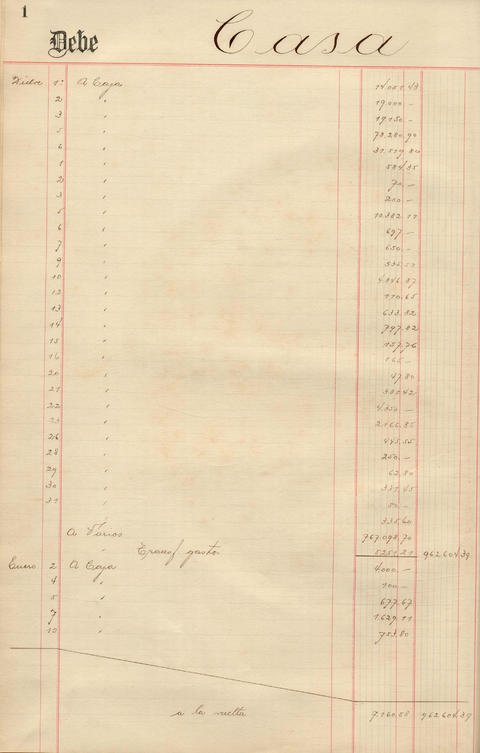 1
Debe Casa
Dicbre 1º A Caja 14.051 43
2 " 19.000 —
3 " 19.150 —
5 " 73.280 90
6 " 31.519 80
1 " 584 35
2 " 70 —
3 " 200 —
5 " 10382 11
6 " 697 —
7 " 650 —
9 "
10 " 4.846 87
12 " 110.65
13 " 633.82
14 " 797.82
15 " 157.76
16 " 165 —
20 " 47.80
21 "
22 " 4.350 —
23 " 2.166.85
26 " 445.55
28 " 250 —
29 " 62.80
30 " 331.45
31 " 50 —
" 335.60
A Varios 767.098,70
" Transf gastos 5251.21 962.604.39
Enero 2 A Caja 4.000 —
4 " 100 —
5 " 677.67
7 " 1.629.11
10 " 753.80
a la vuelta 7.160.58 962.604.39